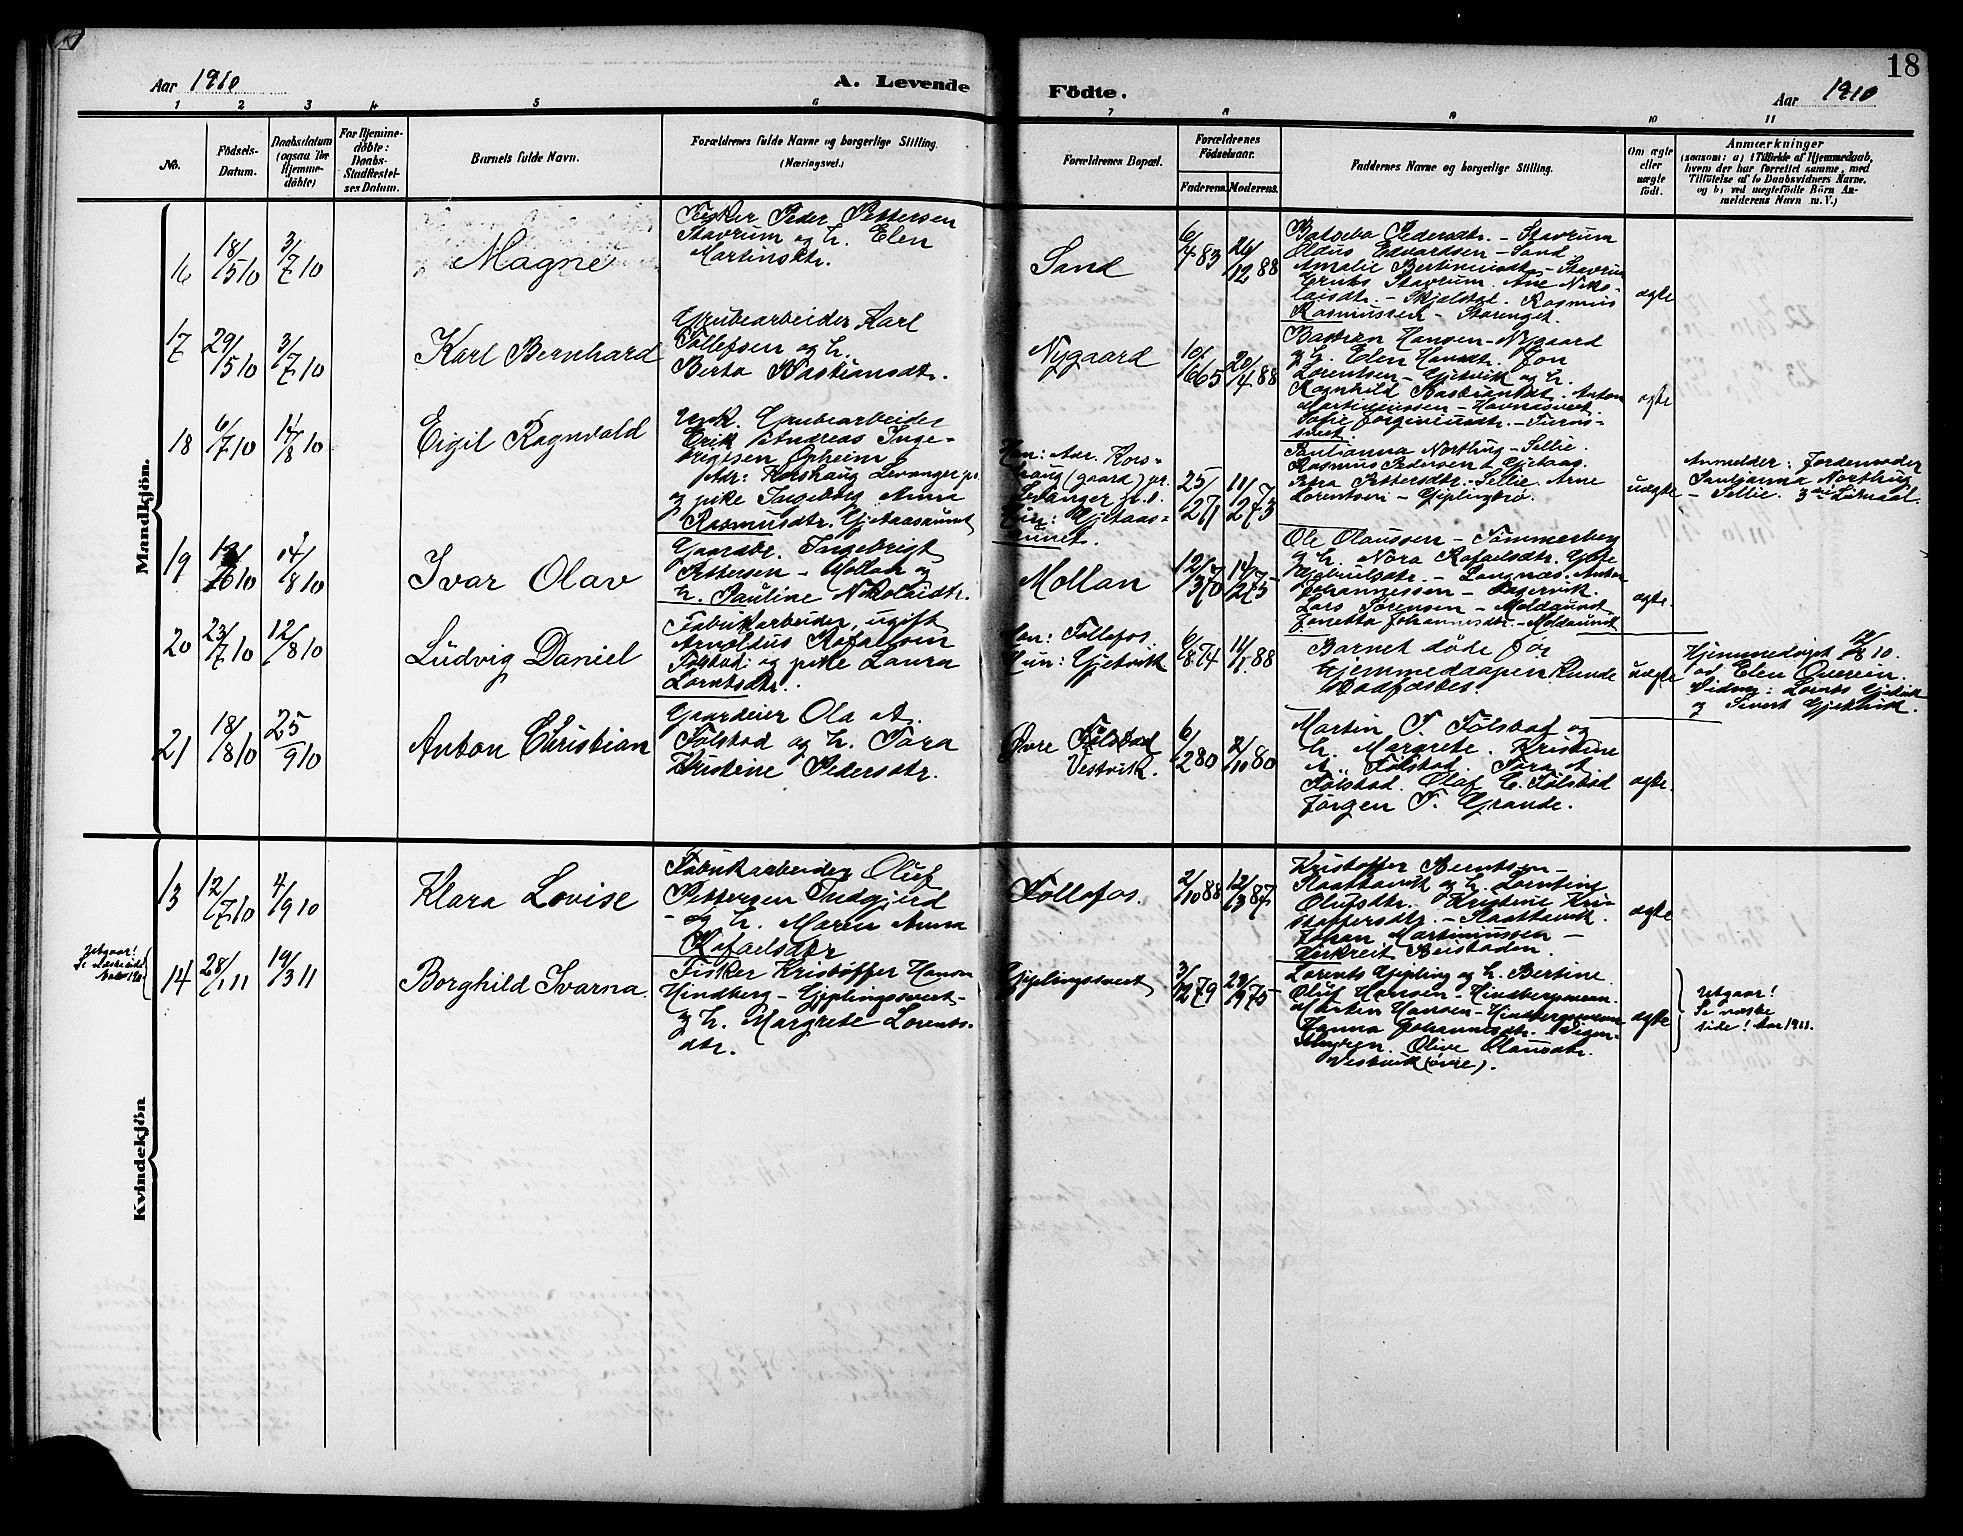 18
Aar 1910
A. Levende
Födte.
Aar 1910
1 2 3 4 5 6
7 8 9 10 11
No.
Födsels-
Datum.
Daabsdatum
(ogsaa for
Hjemme-
döbte)
For Hjemme-
döbte:
Daabs-
Stadfæstel-
ses Datum.
Barnets fulde Navn.
Forældrenes fulde Navne og borgerlige Stilling.
(Næringsvei.)
Forældrenes Bopæl.
Forældrenes
Födselsaar.
Faderens.
Moderens.
Faddernes Navne og borgerlige Stilling.
Om ægte
eller
uægte
födt.
Anmærkninger
(saasom: a) i Tilfælde af Hjemmedaab,
hvem der har forrettet samme, med
Tilföielse af to Daabsvidners Navne,
og b) ved uægtefödte Börn An-
melderens Navn m. V.)
Mandkjön.
16
18/5 10
3/7 10
Magne
Fisker Peder Pettersen
Stavrum og h. Elen
Martinsdtr.
Sand
6/7 83
26/12 88
Batseba Pedersdtr. – Stavrum
Oldus Edvardsen – Sand
Amalie – Stavrum
Stavrum. Ane Niko-
laisdtr. – Skjelstad. Rasmus
Rasmussen – Storenget.
ægte
17
29/5 10
3/7 10
Karl Bernhard
Grubearbeider Karl
Tollefsen og h.
Berta Bastiansdtr.
Nygaard
10/6 65
20/4 88
Bastian Hansen – Nygaard
og h. Elen Hansdtr. Jon
Lorentsen – Gjetvik og h.
Ragnhild Bastiansdtr. Anton
ægte
18
6/7 10
14/8 10
Eigil Ragnvald
Ungk. Grubearbeider
Erik Andreas Inge-
brigtsen Opheim
Adr: Korshaug Levanger pr.
og pike Ingeborg Anna
Rasmusdtr. Gjetaasaunet
Han: Adr. Kors-
haug (gaard) pr.
Levanger
Hun: Gjetaas-
aunet.
25/2 71
11/2 73
Paulianna Northug – Sellie.
Rasmus Pedersen – Gjetaas.
Petra Pettersdtr. – Sellie. Arne
Lorentsen – Gjeplingbrö.
uægte
Anmelder: Jordemoder
Paulianna Northug
– Sellie. 3die Leiermaal.
19
14/8 10
Ivar Olav
Gaardbr. Ingebrigt
Pettersen – Mollan og
h. Pauline Nikolaidtr.
Mollan
12/3 70
14/2 75
Ole Olaussen – Tømmerberg
og h. Nora Rafaelsdtr. Gjøre
Gabrielsdtr. – Langnæs. Anton
Johannessen – Dagervik.
Lars Sørensen – Moldaunet
Jonetta Johannesdtr. – Moldaunet
ægte.
20
23/7 10
12/8 10
Ludvig Daniel
Fabrikarbeider, ugift
Arnoldus Rafaelsen
Følstad og pike Laura
Lorntsdtr.
Han: Follafos.
Hun: Gjetvik
6/8 74
11/1 88
Barnet døde før
hjemmedaapen kunde
stadfæstes
uægte
Hjemmedøpt 12/8 10.
av Elen Overein.
Vidner: Lornts Gjetvik
og Sivert Gjetvik.
21
18/8 10
25/9 10
Anton Christian
Gaardeier Ola A.
Følstad og h. Tora
Kristine Pedersdtr.
Øvre Følstad
Vestvik.
6/2 80
2/10 80
Martin T. Følstad og
h. Margrete. Kristine
A. Følstad. Tora A.
Følstad. Olaf E. Følstad
Jørgen T. Grande.
ægte.
Kvindekjön
13
12/7 10
4/9 10
Klara Lovise
Fabrikarbeider Oluf
Pettersen Indgjerd
– og h. Maren Anna
Rafaelsdtr
Follafos.
2/10 88
12/3 87
Kristoffer Berntsen –
Klaattavik og h. Lorntine
Olufsdtr. Kristine Kri-
stoffersdtr. – Klaattavik.
Johan Martiniussen –
Beistaden.
ægte
Utgaar!
Se næste side
Aaret 1911
14
28/1 11
19/3 11
Borghild Ivarna.
Fisker Kristoffer Hansen
Hindberg – Gjeplingsveet –
og h. Margrete Lorents-
dtr.
Gjeplingsveet
3/12 79
29/9 75
Lorents Gjepling og h. Bertine
Oluf Hansen – Hindbergveien.
Martin Hansen – Hindbergveien
Hanna Johannesdtr. Vigen –
Myren. Olive Olausdtr.
Vestvik (øvre).
ægte
Utgaar!
Se næste
side! Aar 1911.